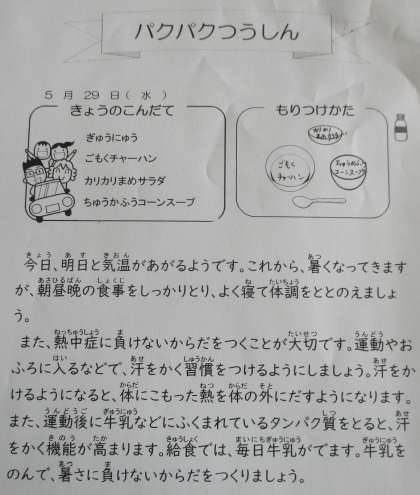 パクパクつうしん
5 月 29 日(水)
きょうのこんだて
ぎゅうにゅう
ごもくチャーハン
カリカリまめサラダ
ちゅうかふうコーンスープ
もりつけかた
カリカリ
まめサラダ
ごもく
チャーハン
ちゅうかふう
コーンスープ
今日、明日と気温があがるようです。これから、暑くなってきます
が、朝昼晩の食事をしっかりとり、よく寝て体調をととのえましょ
う。
また、熱中症に負けないからだをつくことが大切です。運動やお
ふろに入るなどで、汗をかく習慣をつけるようにしましょう。汗をか
けるようになると、体にこもった熱を体の外にだすようになります。
また、運動後に牛乳などにふくまれているタンパク質をとると、汗
をかく機能が高まります。給食では、毎日牛乳がでます。牛乳を
のんで、暑さに負けないからだをつくりましょう。